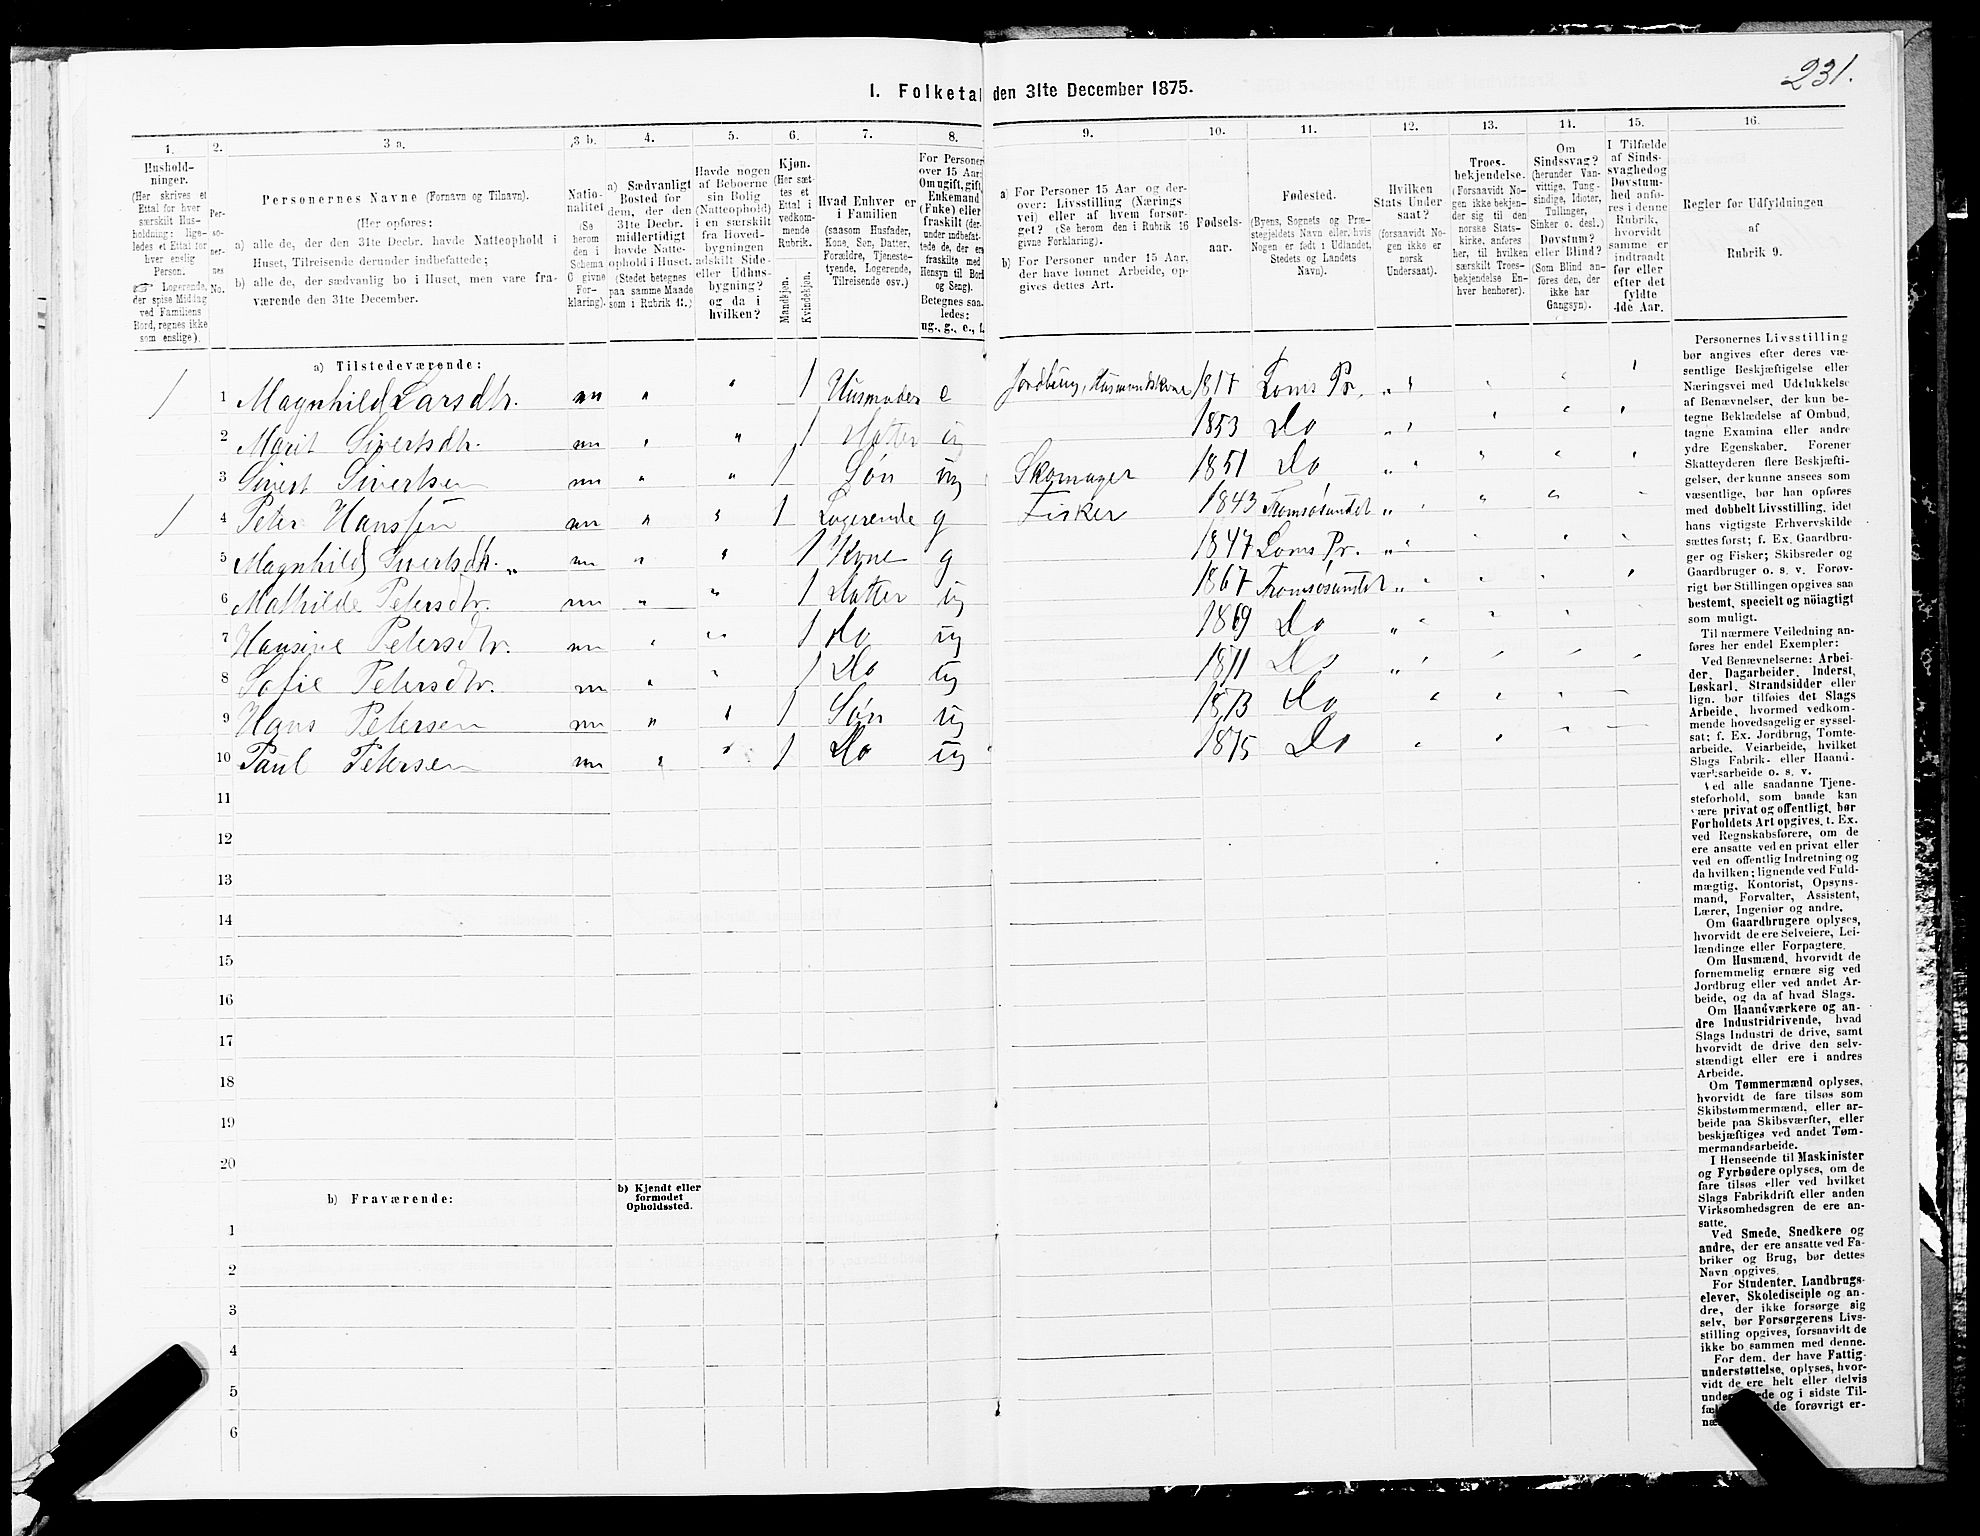 231.
I. Folketal den 31te December 1875.
1. 2. 3 a. 3 b. 4. 5. 6. 7. 8. 9. 10. 11. 12. 13. 14. 15. 16.
Husholdninger.
(Her skrives et
Ettal for hver
særskilt Husholdning:
ligeledes et Ettal for
hver enslig
Person.
☞ Logerende,
der spise Middag
ved Familiens
Bord, regnes ikke
som enslige).
Personernes No.
Personernes Navne (Fornavn og Tilnavn).
(Her opføres:
a) alle de, der den 31te Decbr. havde Natteophold i
Huset, Tilreisende derunder indbefattede;
b) alle de, der sædvanlig bo i Huset, men vare fraværende
den 31te December.
Nationalitet
(Se
herom
den i
Schema
6 givne
Forklaring).
a) Sædvanligt
Bosted for
dem, der den
31te Decbr.
midlertidigt
havde Natteophold
i Huset.
(Stedet betegnes
paa samme Maade
som i Rubrik 11.)
Havde nogen
af Beboerne
sin Bolig
(Natteophold)
i en særskilt
fra Hovedbygningen
adskilt Side-
eller Udhusbygning?
og da i
hvilken?
Kjøn.
(Her sættes
et
Ettal i
vedkommende
Rubrik.
Mandkjøn.
Kvindekjøn.
Hvad Enhver er
i Familien
(saasom Husfader,
Kone, Søn, Datter,
Forældre, Tjenestetyende,
Logerende,
Tilreisende osv.)
For Personer
over 15 Aar:
Om ugift, gift,
Enkemand
(Enke) eller
fraskilt (derunder
indbefattede
de, der ere
fraskilte med
Hensyn til Bord
og Seng).
Betegnes saaledes:
ug., g., e., f.
a) For Personer 15 Aar og derover:
Livsstilling (Næringsvei)
eller af hvem forsørget?
(Se herom den i Rubrik 16
givne Forklaring).
b) For Personer under 15 Aar,
der have lønnet Arbeide, opgives
dettes Art.
Fødselsaar.
Fødested.
(Byens, Sognets og Præstegjeldets
Navn eller, hvis
Nogen er født i Udlandet,
Stedets og Landets
Navn).
Hvilken
Stats Undersaat?
(forsaavidt Nogen
ikke er
norsk
Undersaat).
Troesbekjendelse.
(Forsaavidt Nogen
ikke bekjender
sig til den
norske Statskirke,
anføres
her, til hvilken
særskilt Troesbekjendelse
Enhver
henhører).
Om
Sindssvag?
(herunder Vanvittige,
Tungsindige,
Idioter,
Tullinger,
Sinker o. desl.)
Døvstum?
eller Blind?
(Som Blind anføres
den, der
ikke har
Gangsyn).
I Tilfælde
af Sindssvaghed
og
Døvstumhed
anføres
i denne
Rubrik,
hvorvidt
samme er
indtraadt
før eller
efter det
fyldte
4de Aar.
Regler for Udfyldningen
af
Rubrik 9.
a) Tilstedeværende:
1 1 Magnhild Larsdtr. nn " " 1 Husmoder e Jordbrug, Husmandskone 1817 Loms Pr. "
2 Marit Sivertsdtr. nn " " 1 Datter ug 1853 Do "
3 Sivert Sivertsen nn " " 1 Søn ug Skomager 1851 Do "
1 4 Peter Hanssen nn " " 1 Logerende g Fisker 1843 Tromsøsundet "
5 Magnhild Sivertsdtr. nn " " 1 Kone g 1847 Loms Pr. "
6 Mathilde Petersdtr. nn " " 1 Datter ug 1867 Tromsøsundet "
7 Hansine Petersdtr. nn " " 1 Do ug 1869 Do "
8 Sofie Petersdtr. nn " " 1 Do ug 1871 Do "
9 Hans Petersen nn " " 1 Søn ug 1873 Do "
10 Paul Petersen nn " " 1 Do ug 1875 Do "
11
12
13
14
15
16
17
18
19
20
b) Fraværende:
b) Kjendt eller
formodet
Opholdssted.
1
2
3
4
5
6
Personernes Livsstilling
bør angives efter deres væsentlige
Beskjæftigelse eller
Næringsvei med Udelukkelse
af Benævnelser, der kun betegne
Beklædelse af Ombud,
tagne Examina eller andre
ydre Egenskaber. Forener
Skatteyderen flere Beskjæftigelser,
der kunne ansees som
væsentlige, bør han opføres
med dobbelt Livsstilling, idet
hans vigtigste Erhvervskilde
sættes først; f. Ex. Gaardbruger
og Fisker; Skibsreder og
Gaardbruger o. s. v. Forøvrigt
bør Stillingen opgives saa
bestemt, specielt og nøiagtigt
som muligt.
Til nærmere Veiledning anføres
her endel Exempler:
Ved Benævnelserne: Arbeider,
Dagarbeider, Inderst,
Løskarl, Strandsidder eller
lign. bør tilføies det Slags
Arbeide, hvormed vedkommende
hovedsagelig er sysselsat;
f. Ex. Jordbrug, Tomtearbeide,
Veiarbeide, hvilket
Slags Fabrik- eller Haandværksarbeide
o. s. v.
Ved alle saadanne Tjenesteforhold,
som baade kan
være privat og offentligt, bør
Forholdets Art opgives, f. Ex.
ved Regnskabsførere, om de
ere ansatte ved en privat eller
ved en offentlig Indretning og
da hvilken; lignende ved Fuldmægtig,
Kontorist, Opsynsmand,
Forvalter, Assistent,
Lærer, Ingeniør og andre.
Om Gaardbrugere oplyses,
hvorvidt de ere Selveiere, Leilændinge
eller Forpagtere.
Om Husmænd, hvorvidt de
fornemmelig ernære sig ved
Jordbrug eller ved andet Arbeide,
og da af hvad Slags.
Om Haandværkere og andre
Industridrivende, hvad
Slags Industri de drive, samt
hvorvidt de drive den selvstændigt
eller ere i andres
Arbeide.
Om Tømmermænd oplyses,
hvorvidt de fare tilsøs som
Skibstømmermænd, eller arbeide
paa Skibsværfter, eller
beskjæftiges ved andet Tømmermandsarbeide.
I Henseende til Maskinister
og Fyrbødere oplyses, om de
fare tilsøs eller ved hvilket
Slags Fabrikdrift eller anden
Virksomhedsgren de ere ansatte.
Ved Smede, Snedkere og
andre, der ere ansatte ved Fabriker
og Brug, bør dettes
Navn opgives.
For Studenter, Landbrugselever,
Skoledisciple og andre,
der ikke forsørge sig
selv, bør Forsørgerens Livsstilling
opgives, forsaavidt de
ikke bo sammen med denne.
For dem, der have Fattigunderstøttelse,
oplyses, hvorvidt
de ere helt eller delvis
og i sidste
de forøvrigt